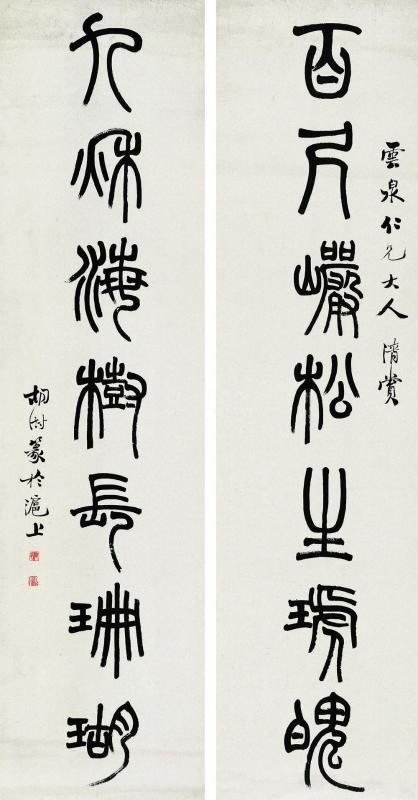 雲泉仁兄大人清賞
百尺巖松生琥魄
九秌海樹長珊瑚
胡澍篆於滬上